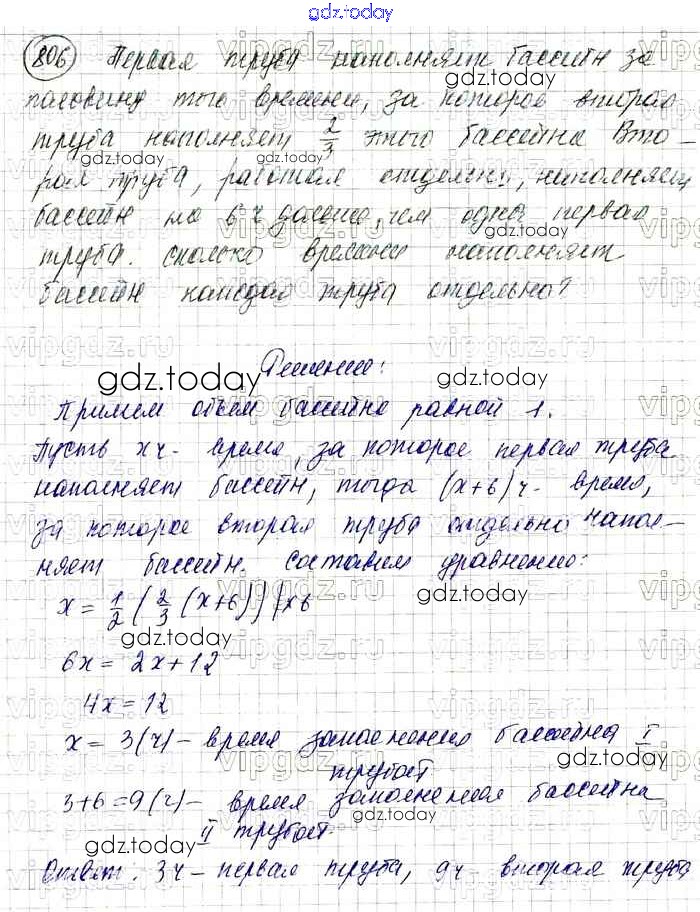 gdz.today
806 Первая труба наполняет бассейн за
gdz.today
половину того времени, за которое вторая
труба наполняет 2/3 этого бассейна Вто-
gdz.today gdz.today
рая труба, работая отдельно, наполняет
бассейн на 6 ч дольше, чем одна первая
труба. сколько времени наполняет
бассейн каждая труба отдельно?
Решение:
gdz.today gdz.today
Примем объем бассейна равной 1.
Пусть x ч - время, за которое первая труба
наполняет бассейн, тогда (x+6) ч - время,
за которое вторая труба отдельно напол-
няет бассейн. составим уравнение:
x = 1/2 (2/3 (x+6)) | x6
gdz.today
gdz.today
6x = 2x+12
4x = 12
x = 3(ч) - время заполнения бассейна I
gdz.today
трубой
3+6=9(ч) - время заполнения бассейна
gdz.today
II трубой.
Ответ: 3ч - первая труба, 9ч вторая труба
gdz.today